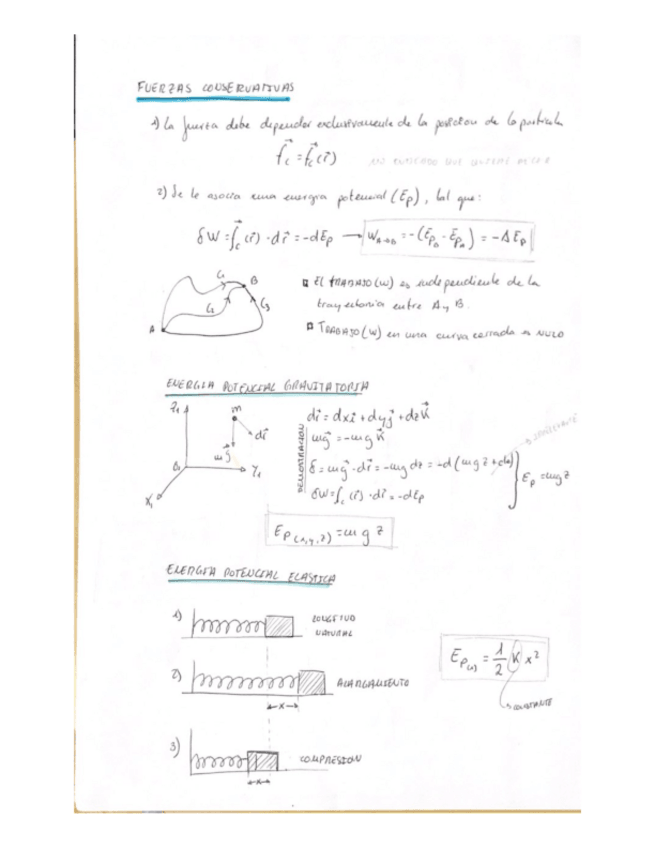 FUERZAS CONSERVATIVAS
1) La fuerza debe depender exclusivamente de la posicion de la particula
f⃗c = f⃗c(r⃗)
2) Se le asocia una energia potencial (Ep), tal que:
δW = f⃗c(r⃗)·dr⃗ = -dEp → W A→B = -(EpB - EpA) = -ΔEp
C1
B
C2
C3
A
El TRABAJO (W) es independiente de la
trayectoria entre A y B.
TRABAJO (W) en una curva cerrada es NULO
ENERGIA POTENCIAL GRAVITATORIA
Z1
m
dr⃗
mg⃗
O1
Y1
X1
DEMOSTRACION
dr⃗ = dxi⃗ + dyj⃗ + dzk⃗
mg⃗ = -mgk⃗
δ = mg⃗·dr⃗ = -mg dz = -d(mgz + cte)
CONSTANTE
δW = fc(r⃗)·dr⃗ = -dEp
Ep = mgz
Ep(x,y,z) = mgz
ENERGIA POTENCIAL ELASTICA
1)
LONGITUD
NATURAL
2)
ALARGAMIENTO
x
Ep(x) = 1/2 K x²
CONSTANTE
3)
COMPRESION
x